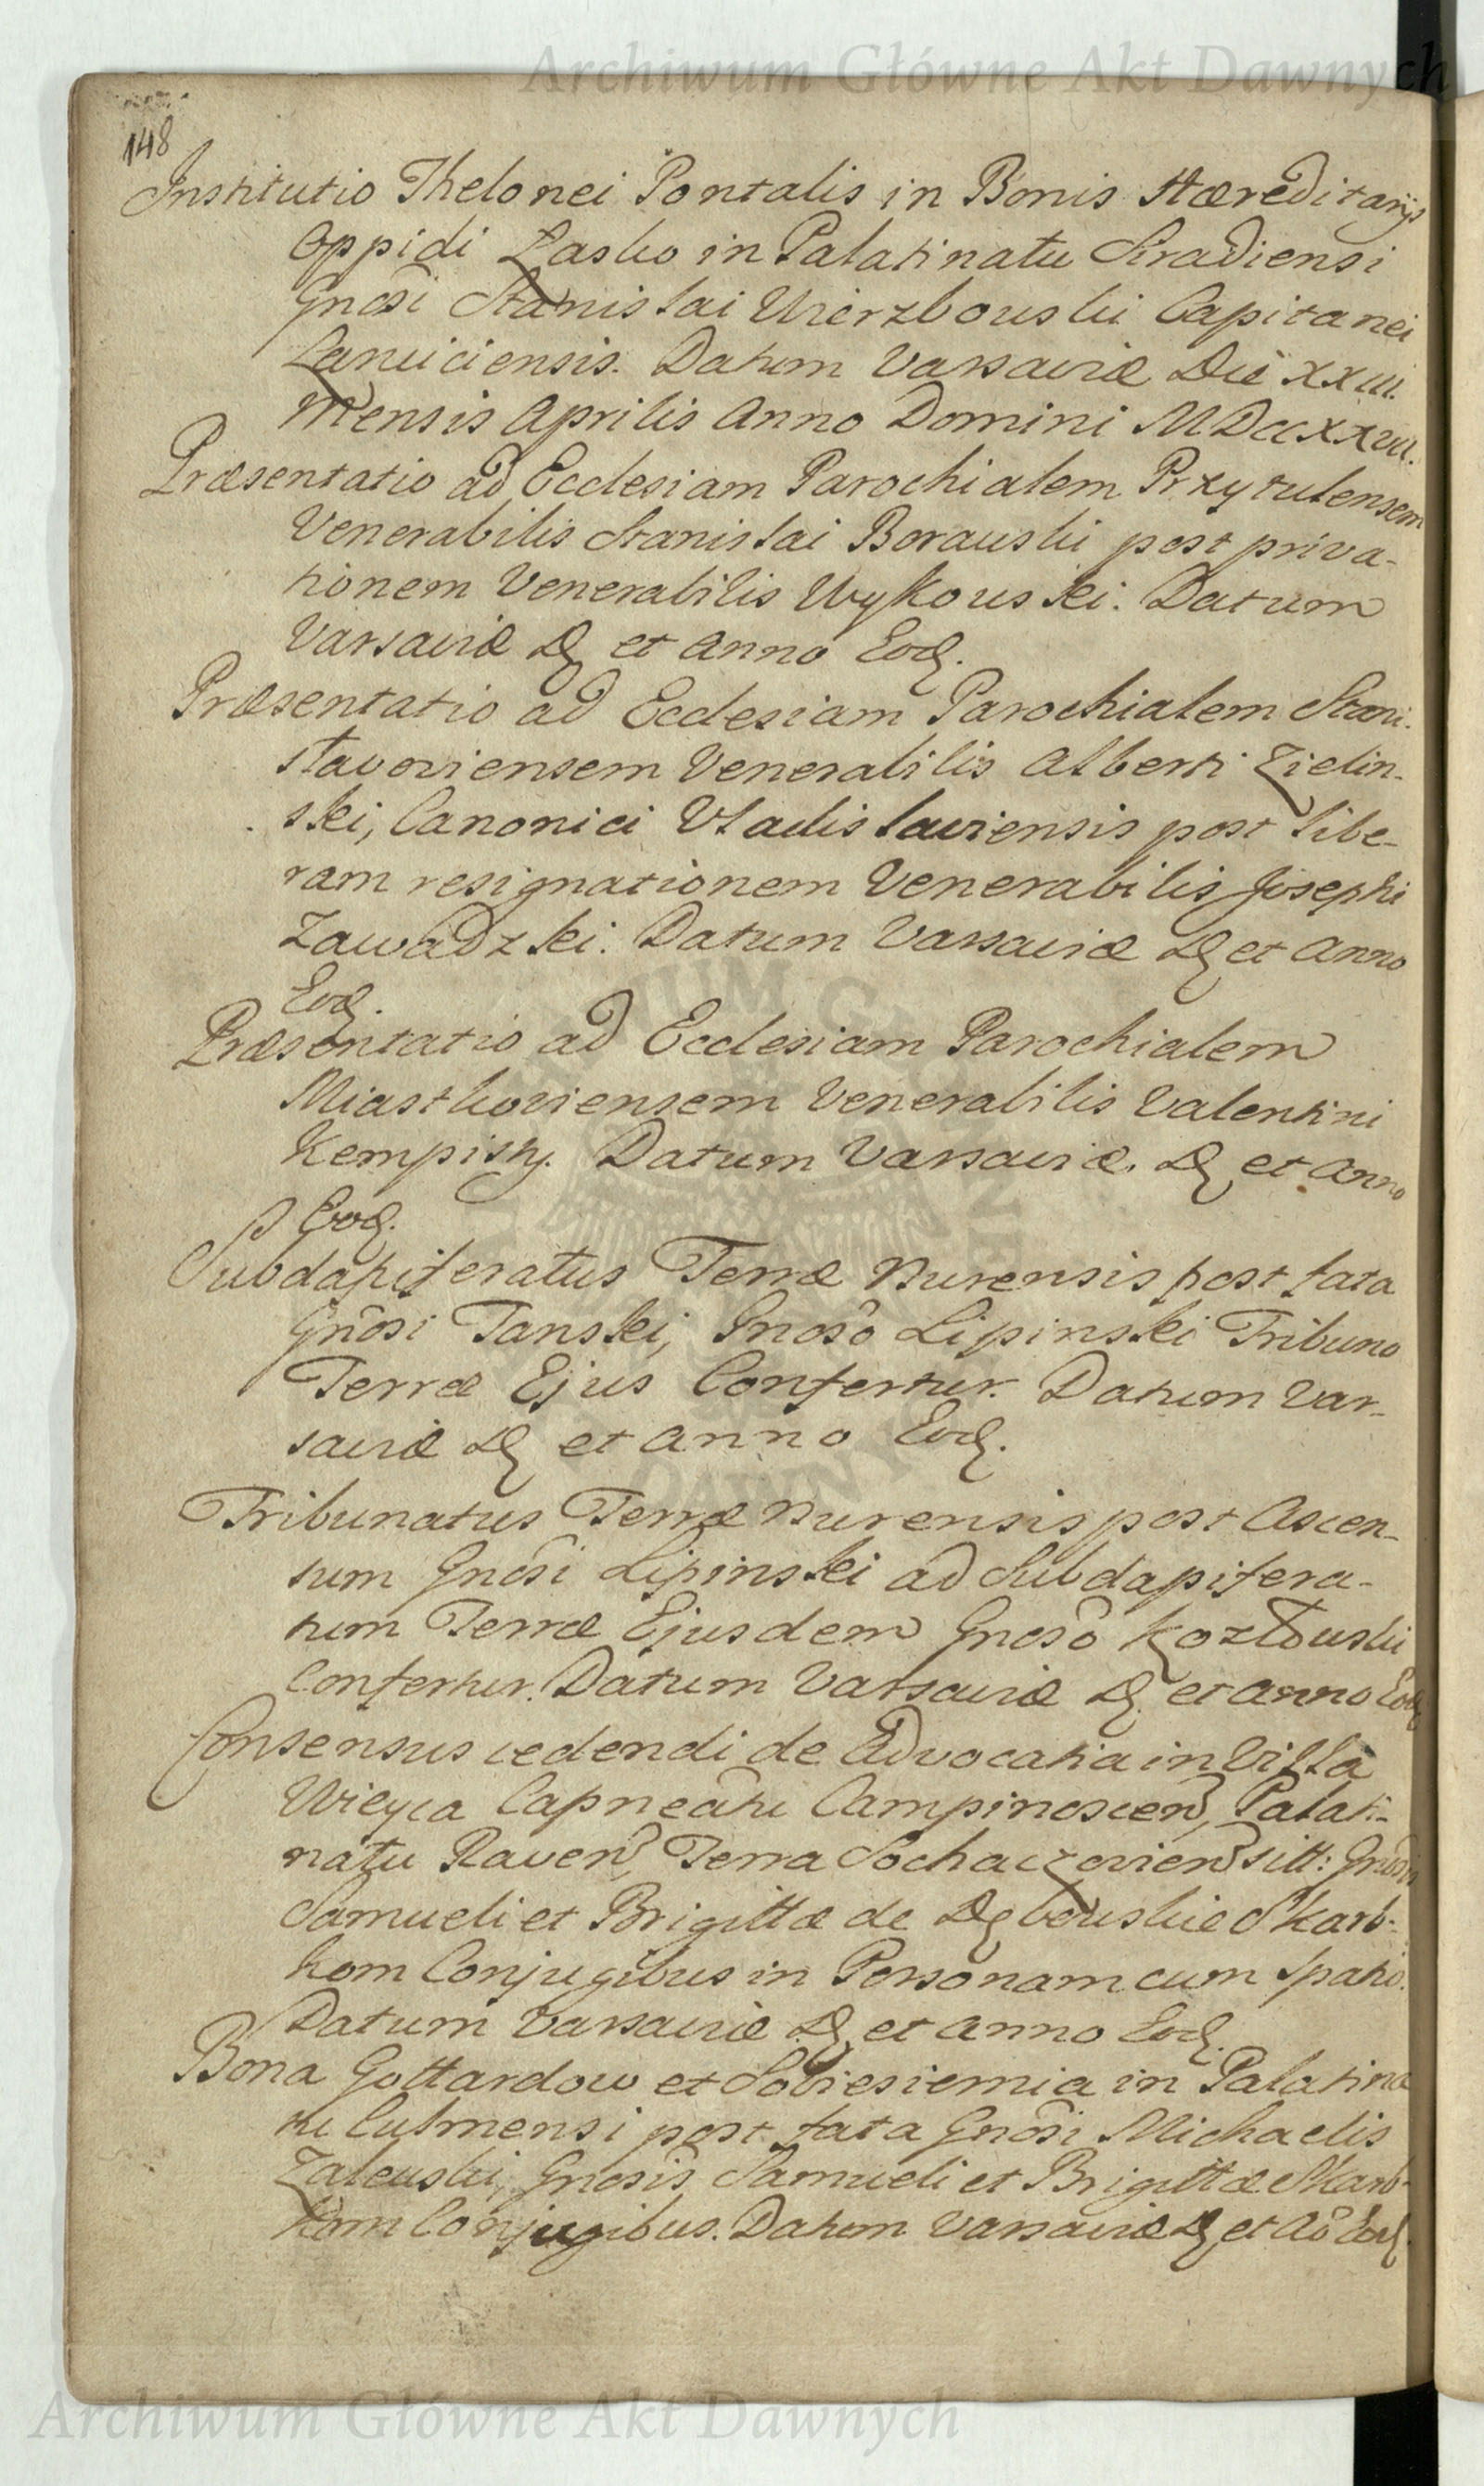 Archiwum Główne Akt Dawnych
148
Institutio Thelonei Pontalis in Bonis Hæreditarijs
Oppidi Łasko in Palatinatu Siradiensi
Gnosi Stanislai Wierzbowski Capitanei
Łanciciensis. Datum Varsaviæ Die XXIII.
Mensis Aprilis Anno Domini MDCCXXVII.
Præsentatio ad Ecclesiam Parochialem Przytulensem
Venerabilis Stanislai Borawski post priva-
tionem Venerabilis Wykowski. Datum
Varsaviæ D et Anno Eod.
Præsentatio ad Ecclesiam Parochialem Stani-
slavoviensem Venerabilis Alberti Zielin-
ski, Canonici Vladislaviensis post libe-
ram resignationem Venerabilis Josephi
Zawadzki. Datum Varsaviæ D et Anno
Eod.
Præsentatio ad Ecclesiam Parochialem
Miastkoviensem Venerabilis Valentini
Kempisty. Datum Varsaviæ. D et Anno
Eod.
Subdapiferatus Terræ Nurensis post fata
Gnosi Tanski, Gnoso Lipinski Tribuno
Terræ Ejus Confertur. Datum Var-
saviæ D et Anno Eod.
Tribunatus Terræ Nurensis post Ascen-
sum Gnosi Lipinski ad Subdapifera-
tum Terræ Ejusdem Gnoso Kozłowski
Confertur. Datum Varsaviæ D et Anno Eod
Consensus cedendi de Advocatia in Villa
Wieyca Capneatu Campinoscen, Palati-
natu Raven, Terra Sochaczovien sitt: Gnosis
Samueli et Brigittæ de Dębowskie Skarb-
kom Conjugibus in Personam cum spatio.
Datum Varsaviæ D et Anno Eod.
Bona Gottardow et Sobiesiernia in Palatina
tu Culmensi post fata Gnosi Michaelis
Zalewski, Gnosis Samueli et Brigittæ Skarb-
kom Conjugibus. Datum Varsaviæ D et Ao Eod.
Archiwum Główne Akt Dawnych